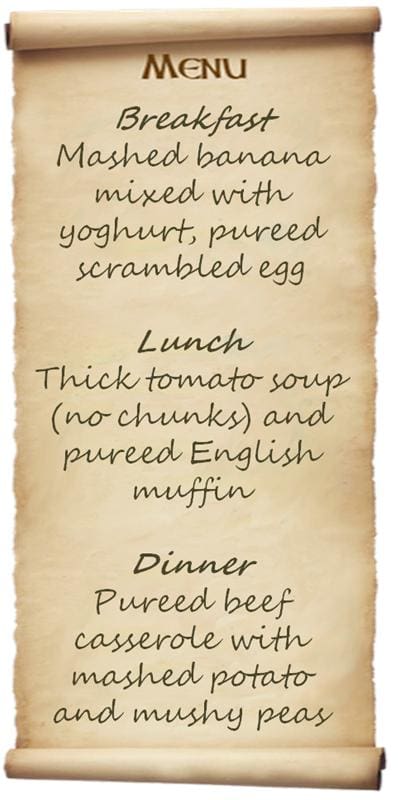 MENU
Breakfast
Mashed banana
mixed with
yoghurt, pureed
scrambled egg
Lunch
Thick tomato soup
(no chunks) and
pureed English
muffin
Dinner
Pureed beef
casserole with
mashed potato
and mushy peas